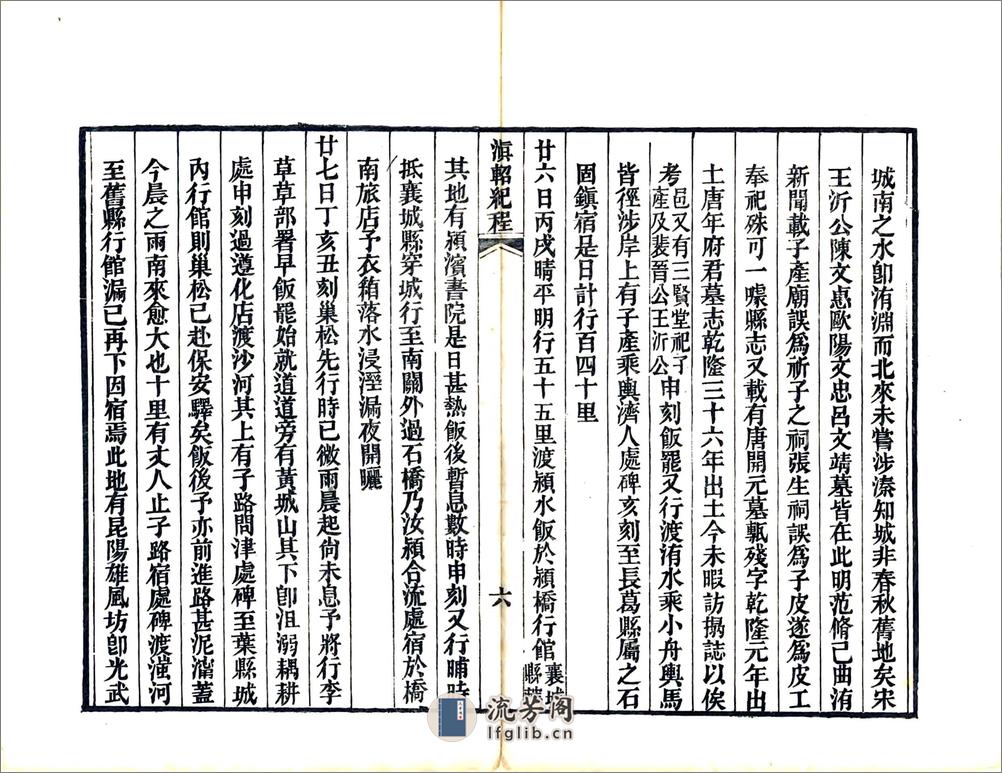 城南之水卽洧淵而北來未嘗涉溱知城非春秋舊地矣宋
王沂公陳文惠歐陽文忠呂文靖墓皆在此明范脩己曲洧
新聞載子產廟誤爲祈子之祠張生祠誤爲子皮遂爲皮工
奉祀殊可一噱縣志又載有唐開元墓甎殘字乾隆元年出
土唐年府君墓志乾隆三十六年出土今未暇訪搨誌以俟
考邑又有三賢堂祀子
產及裴晉公王沂公申刻飯罷又行渡洧水乘小舟輿馬
皆徑涉岸上有子產乘輿濟人處碑亥刻至長葛縣屬之石
固鎭宿是日計行百四十里
廿六日丙戌晴平明行五十五里渡潁水飯於潁橋行館襄城
縣
滇軺紀程
六
其地有潁濱書院是日甚熱飯後暫息數時申刻又行晡時
抵襄城縣穿城行至南關外過石橋乃汝潁合流處宿於橋
南旅店予衣箱落水浸溼漏夜開曬
廿七日丁亥丑刻巢松先行時已微雨晨起尙未息予將行李
草草部署早飯罷始就道道旁有黃城山其下卽沮溺耦耕
處申刻過遵化店渡沙河其上有子路問津處碑至葉縣城
內行館則巢松已赴保安驛矣飯後予亦前進路甚泥濘蓋
今晨之雨南來愈大也十里有丈人止子路宿處碑渡滍河
至舊縣行館漏已再下因宿焉此地有昆陽雄風坊卽光武
流芳阁
lfglib.cn